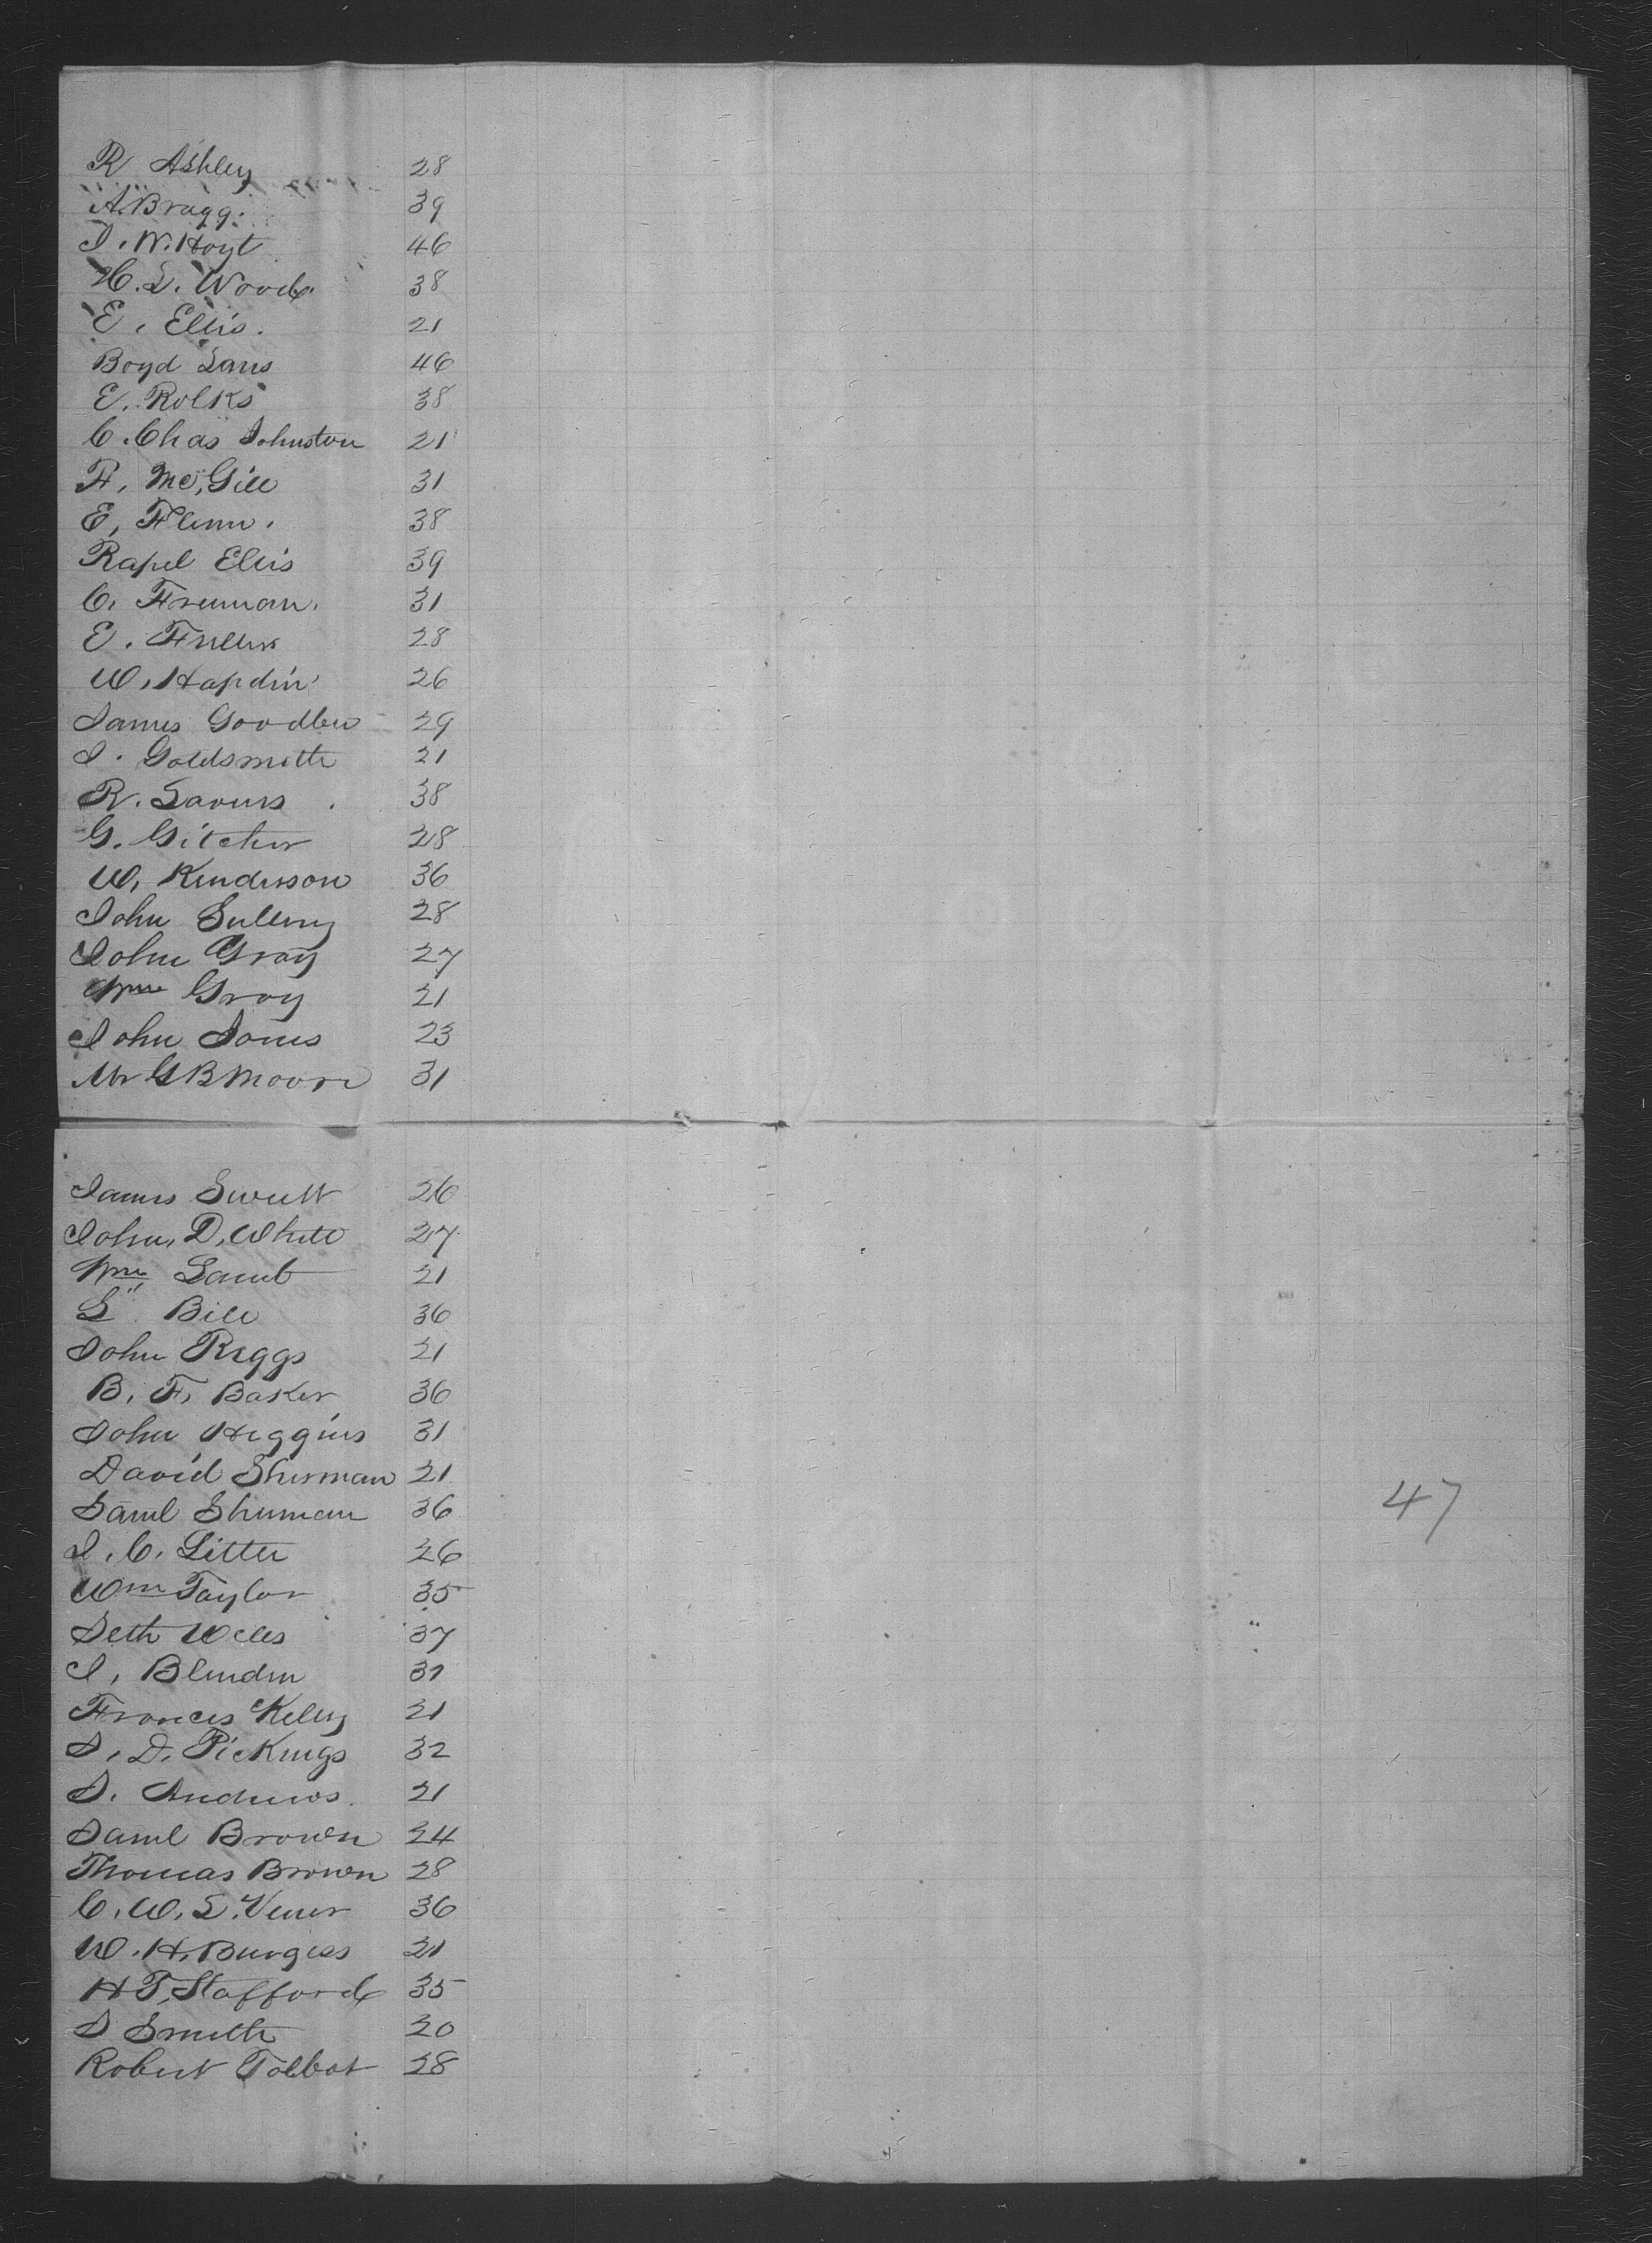 R Ashley 28
A. Bragg. 39
J. W. Hoyt 46
H. L. Wood 38
E. Ellis. 21
Boyd Laws 46
E. Rolks 38
C. Chas Johnston 21
F. McGill 31
E. Flinn. 38
Rapel Ellis 39
C. Freeman. 31
E. Fuller 28
W. Hapdin 26
James Goodlew 29
J. Goldsmith 21
R. Savers 38
G. Gitcher 28
W. Kenderson 36
John Sullivy 28
John Gray 27
Wm Gray 21
John Jones 23
Mr G B Moore 31
James Swett 26
John. D. White 27
Wm Lamb 21
L. Bill 36
John Riggs 21
B. F. Baker 36
John Higgins 31
David Sherman 21
Saml Shuman 36
J. C. Litter 26
Wm Taylor 35
Seth Wells 37
J. Blinden 31
Frances Kelly 21
S. D. Pickings 32
S. Andrews. 21
Saml Brown 24
Thomas Brown 28
C. W. L. Viner 36
W. H. Burgess 21
H T. Stafford 35
S Smith 20
Robert Tolbot 28
47